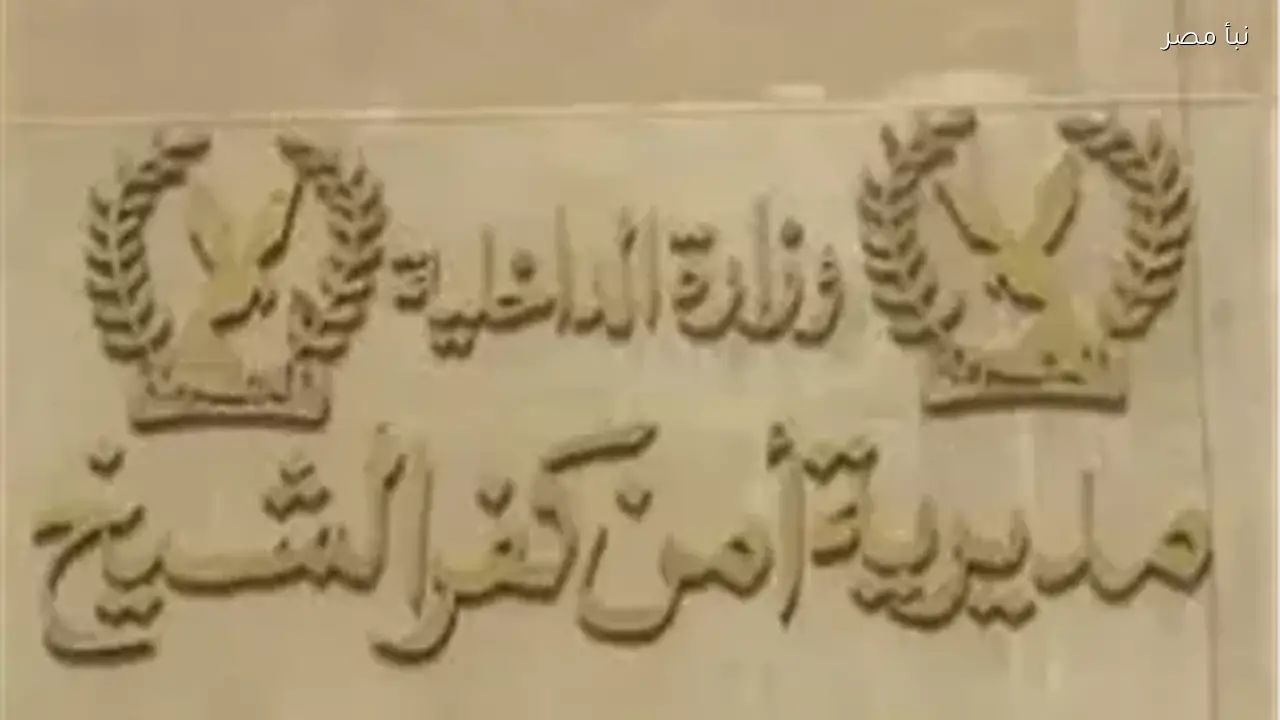 نبأ مصر
وزارة الداخلية
مديرية أمن كفر الشيخ